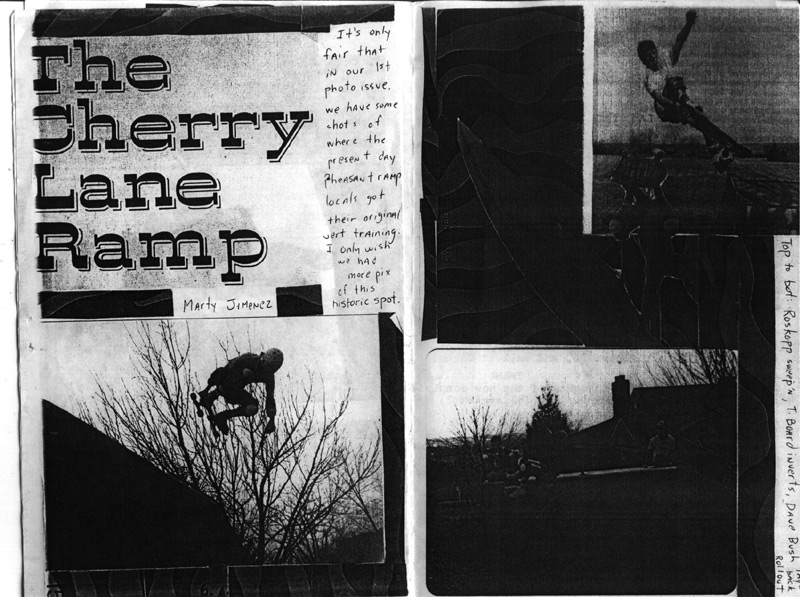 The
Cherry
Lane
Ramp
It's only
fair that
in our 1st
photo issue,
we have some
shots of
where the
present day
Pheasant ramp
locals got
their original
vert training.
I only wish
we had
more pix
of this
historic spot.
Marty Jimenez
Top to bot: Roskopp sweep'n, T. Board inverts, Dave Bush
back
Rollout